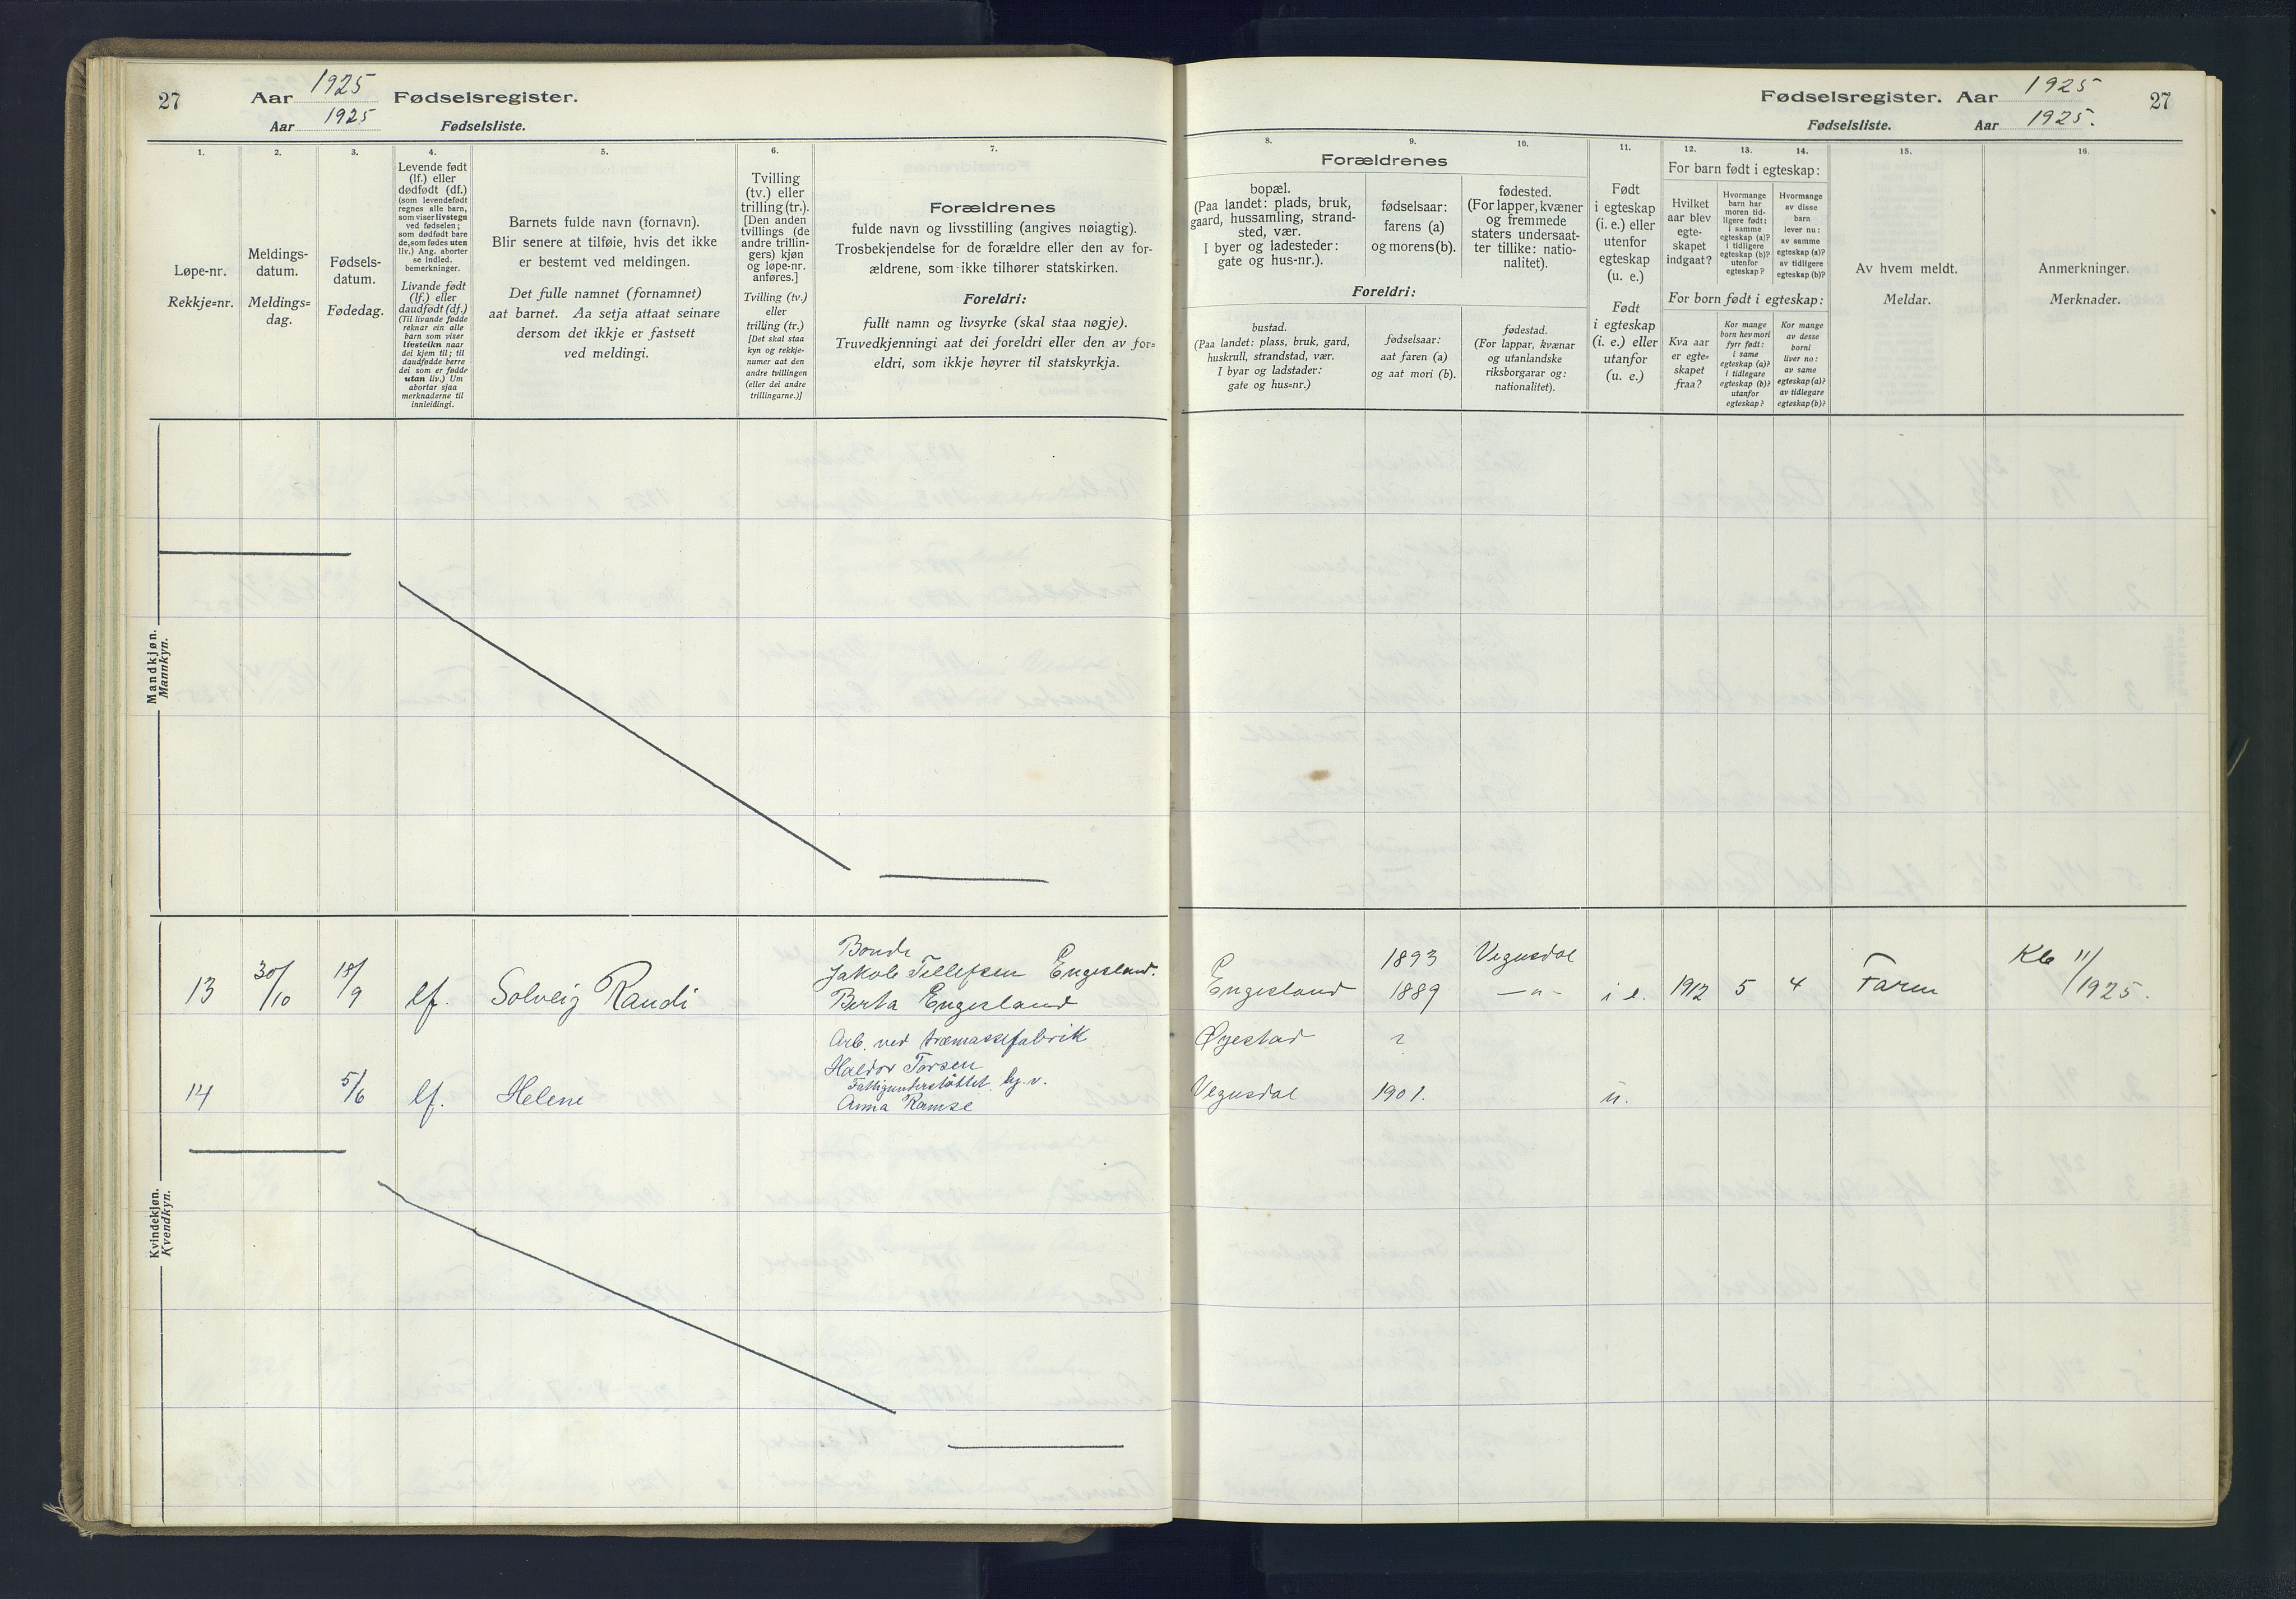 27
Aar 1925 Fødselsregister.
Aar 1925 Fødselsliste.
1.
Løpe-nr.
Rekkje=nr.
2.
Meldings-
datum.
Meldings=
dag.
3.
Fødsels-
datum.
Fødedag.
4.
Levende født
(lf.) eller
dødfødt (df.)
(som levendefødt
regnes alle barn,
som viser livstegn
ved fødselen;
som dødfødt bare
de, som fødes uten
liv.) Ang. aborter
se indled.
bemerkninger.
Livande født
(lf.) eller
daudfødt (df.)
(Til livande fødde
reknar ein alle
barn som viser
livsteikn naar
dei kjem til; til
daudfødde berre
dei som er fødde
utan liv.) Um
abortar sjaa
merknaderne til
innleidingi.
5.
Barnets fulde navn (fornavn).
Blir senere at tilføie, hvis det ikke
er bestemt ved meldingen.
Det fulle namnet (fornamnet)
aat barnet. Aa setja attaat seinare
dersom det ikkje er fastsett
ved meldingi.
6.
Tvilling
(tv.) eller
trilling (tr.).
[Den anden
tvillings (de
andre trillin-
gers) kjøn
og løpe-nr.
anføres.]
Tvilling (tv.)
eller
trilling (tr.)
[Det skal staa
kyn og rekkje-
numer aat den
andre tvillingen
(eller dei andre
trillingarne.)]
7.
Forældrenes
fulde navn og livsstilling (angives nøiagtig).
Trosbekjendelse for de forældre eller den av for-
ældrene, som ikke tilhører statskirken.
Foreldri:
fullt namn og livsyrke (skal staa nøgje).
Truvedkjenningi aat dei foreldri eller den av for=
eldri, som ikkje høyrer til statskyrkja.
Mandkjøn.
Mannkyn.
13 30/10 18/9 lf. Solveig Randi
Bonde
Jakob Tellefsen Engesland.
Berta Engesland
14 5/6 lf. Helene
Arb. ved træmassefabrik
Haldor Torsen
Fattigunderstøttet
Anna Ramse
Kvindekjøn.
Kvendkyn.
Fødselsregister. Aar 1925
27
Fødselsliste. Aar 1925.
Forældrenes
8.
bopæl.
(Paa landet: plads, bruk,
gaard, hussamling, strand-
sted, vær.
I byer og ladesteder:
gate og hus-nr.).
9.
fødselsaar:
farens (a)
og morens (b).
10.
fødested.
(For lapper, kvæner
og fremmede
staters undersaat-
ter tillike: natio-
nalitet).
Foreldri:
bustad.
(Paa landet: plass, bruk, gard,
huskrull, strandstad, vær.
I byar og ladstader:
gate og hus=nr.)
fødselsaar:
aat faren (a)
og aat mori (b).
fødestad.
(For lappar, kvænar
og utanlandske
riksborgarar og:
nationalitet).
11.
Født
i egteskap
(i. e.) eller
utenfor
egteskap
(u. e.)
Født
i egteskap
(i. e.) eller
utanfor
(u. e.)
12. 13. 14.
For barn født i egteskap:
Hvilket
aar blev
egte-
skapet
indgaat?
Hvormange
barn har
moren tid-
ligere født:
i samme
egteskap (a)?
i tidligere
egteskap (b)?
utenfor
egteskap?
Hvormange
av disse
barn
lever nu:
av samme
egteskap (a)?
av tidligere
egteskap (b)?
For born født i egteskap:
Kva aar
er egte=
skapet
fraa?
Kor mange
born hev mori
fyrr født:
i same
egteskap (a)?
i tidlegare
egteskap (b)?
utanfor
egteskap?
Kor mange
av desse
borni
liver no:
av same
egteskap (a)?
av tidlegare
egteskap (b)?
15.
Av hvem meldt.
Meldar.
16.
Anmerkninger.
Merknader.
Engesland 1893 Vegusdal
1889 —"— i e. 1912 5 4 Faren Kb 11/1925.
Øyestad ?
Vegusdal 1901. u.